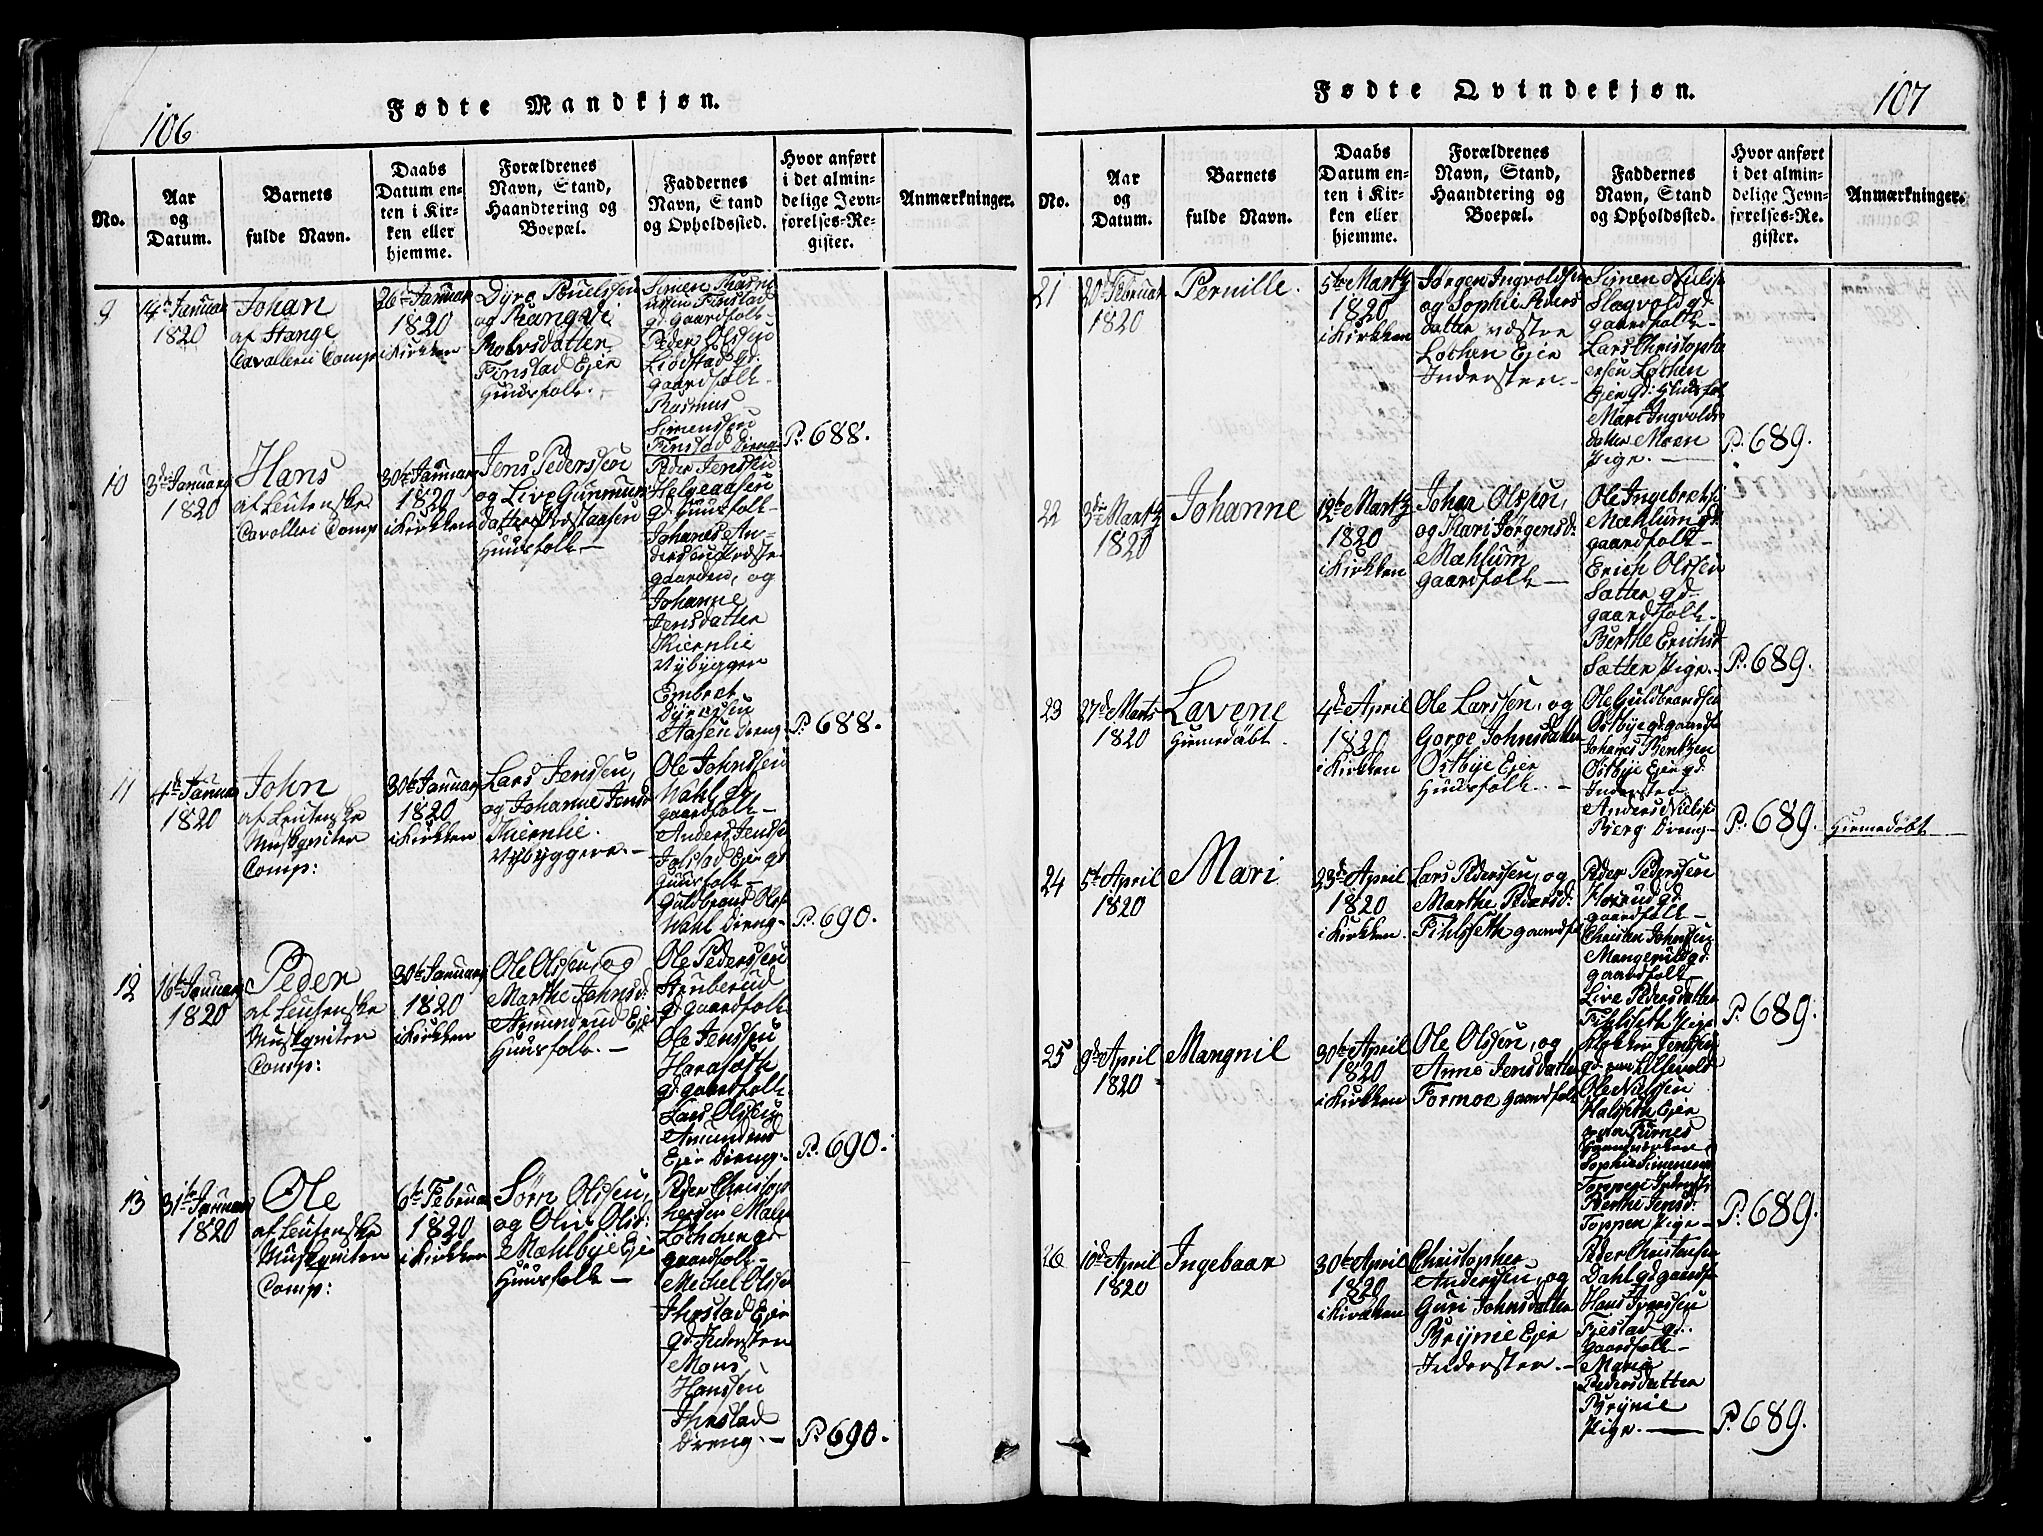 106
Fødte Mandkjøn.
No.
Aar
og
Datum.
Barnets
fulde Navn.
Daabs
Datum en-
ten i Kir-
ken eller
hjemme.
Forældrenes
Navn, Stand,
Haandtering og
Boepæl.
Faddernes
Navn, Stand
og Opholdssted.
Hvor anført
i det almin-
delige Jevn-
førelses-Re-
gister.
Anmærkninger.
9
14de Januar
1820
Johan
af Stange
Cavalleri Comp
26de Januar
1820
i Kirkken
Dyre Pouelssen
og
Rolvsdatter
Finstad Ejer
Huusfolk.
Simen
Finstad
gd. gaardfolk
Peder Olssen
Liødstad gd.
gaardfolk.
Rasmus
Simenssen
Finstad Dreng
P. 688.
10
3de Januarj
1820
Hans
af Leutenske
Cavalleri Comp
30te Januarj
1820
i Kirkken
Jens Pederssen
og Live Gunmun
datter
Huusfolk
Peder Jenssen
Helgeaasen
gd. huusfolk
Johanes An-
gaarden, og
Johanne
Jensdatter
Kiernlie
Nybyggere
Embret
Dyressen
Aasen Dreng
P. 688.
11
4de Januar
1820
John
af Leutenske
Musqviter
Comp:
30te Januarj
1820
i Kirkken
Lars Jenssen,
og Johanne Jensd
Kiernlie.
Nybyggere.
Ole Johnssen
Wahl gd
gaardfolk
Anders Jenss
Jalstad Ejer gd
huusfolk
Guldbrand Olss
Wahl Dreng
P. 690.
12
16de Januar
1820
Peder
af Leutenske
Musqviter
Comp:
30te Januarj
1820
i Kirkken
Ole Olssen, og
Marthe Johnsd:
Amundrud Ejer
Huusfolk.
Ole Pederssen
Struberud
gd. gaardfolk
Ole Jenssen
Haraset
gd. gaardfolk
Lars Olssen
Amundrud
Ejer Dreng.
P. 690.
13
31te Januar
1820
Ole
af Leutenske
Musqviter
Comp:
6te Februar
1820
i Kirkken
Sørn Olssen,
og Oliv Olsd:
Mæhlbye Ejer
Huusfolk
Peder Christop
herssen Male
Løthchen gd
gaardfolk
Michel Olss
Thestad Ejer
gd. Inderster
Mons
Hanssen
Thestad
Dreng.
P. 690.
107
Fødte Qvindekjøn.
No.
Aar
og
Datum.
Barnets
fulde Navn.
Daabs
Datum en-
ten i Kir-
ken eller
hjemme.
Forældrenes
Navn, Stand,
Haandtering og
Boepæl.
Faddernes
Navn, Stand
og Opholdssted.
Hvor anført
i det almin-
delige Jevn-
førelses-Re-
gister.
Anmærkninger.
21
20de Februar
1820
Pernille.
5te Martz
1820
i Kirkken
Jørgen Ingvoldssen
og Sophie Peders
datter væstre
Løthen Ejer
Indersten.
Simen
Slagvold gd.
gaardfolk
Lars Christophe
erssen Løthen
Ejer gd. Huusfolk
Mari Ingvolds
datter Moen
Pige.
P. 689.
22
3de Martz
1820
Johanne
12te Martz
1820
i Kirkken
Johan Olssen,
og Mari Jørgensd:
Mæhlum
gaardfolk
Ole Ingebretss
Mæhlum gd.
gaardfolk
Erich Olssen
Sætter gd.
gaardfolk.
Berthe Erichsd
Sætter Pige.
P. 689.
23
27de Marts
1820
Lavene
Hiemedøbt.
4de April
1820
i Kirkken
Ole Larssen, og
Gorpe Johnsdatter
Østbye Ejer
Huusfolk.
Ole Guldbrandssen
Østbye gd. gaardf
Johanes Bentzen
Østbye Ejer gd.
Inderster
Anders Nielss
Bierg Dreng
P. 689.
Hiemedøbt
24
5te April
1820
Mari
23de April
1820
i Kirkken.
Lars Pederssen, og
Marthe Pedersd:
Fihlseth gaardfolk
Peder Pederssen
Horrud gd.
gaardfolk
Christen Johnssen
Mangerud gd.
gaardfolk
Live Pedersdatter
Fihlseth Pige
P. 689.
25
9de April
1820
Mangnil
30te April
1820
i Kirkken
Ole Olssen, og
Anne Jensdatter
Formoe gaardfolk
Klokker Jenssen
gd. paa Ellevold
Ole Nilssen
Halseth Ejer
Sophie Simensd
Berthe Jensd:
Toppen Pige
P. 689.
26
10de April
1820
Ingebaar
30te April
1820
i Kirkken
Christopher
Anderssen, og
Guri Johnsdatter
Brynie Ejer
Indersten.
Peder Christenssen
Dahl gd. gaardf
Hans Iverssen
Fiestad gd.
gaardfolk
Marie
Pedersdatter
Brynie
Pige.
P. 689.